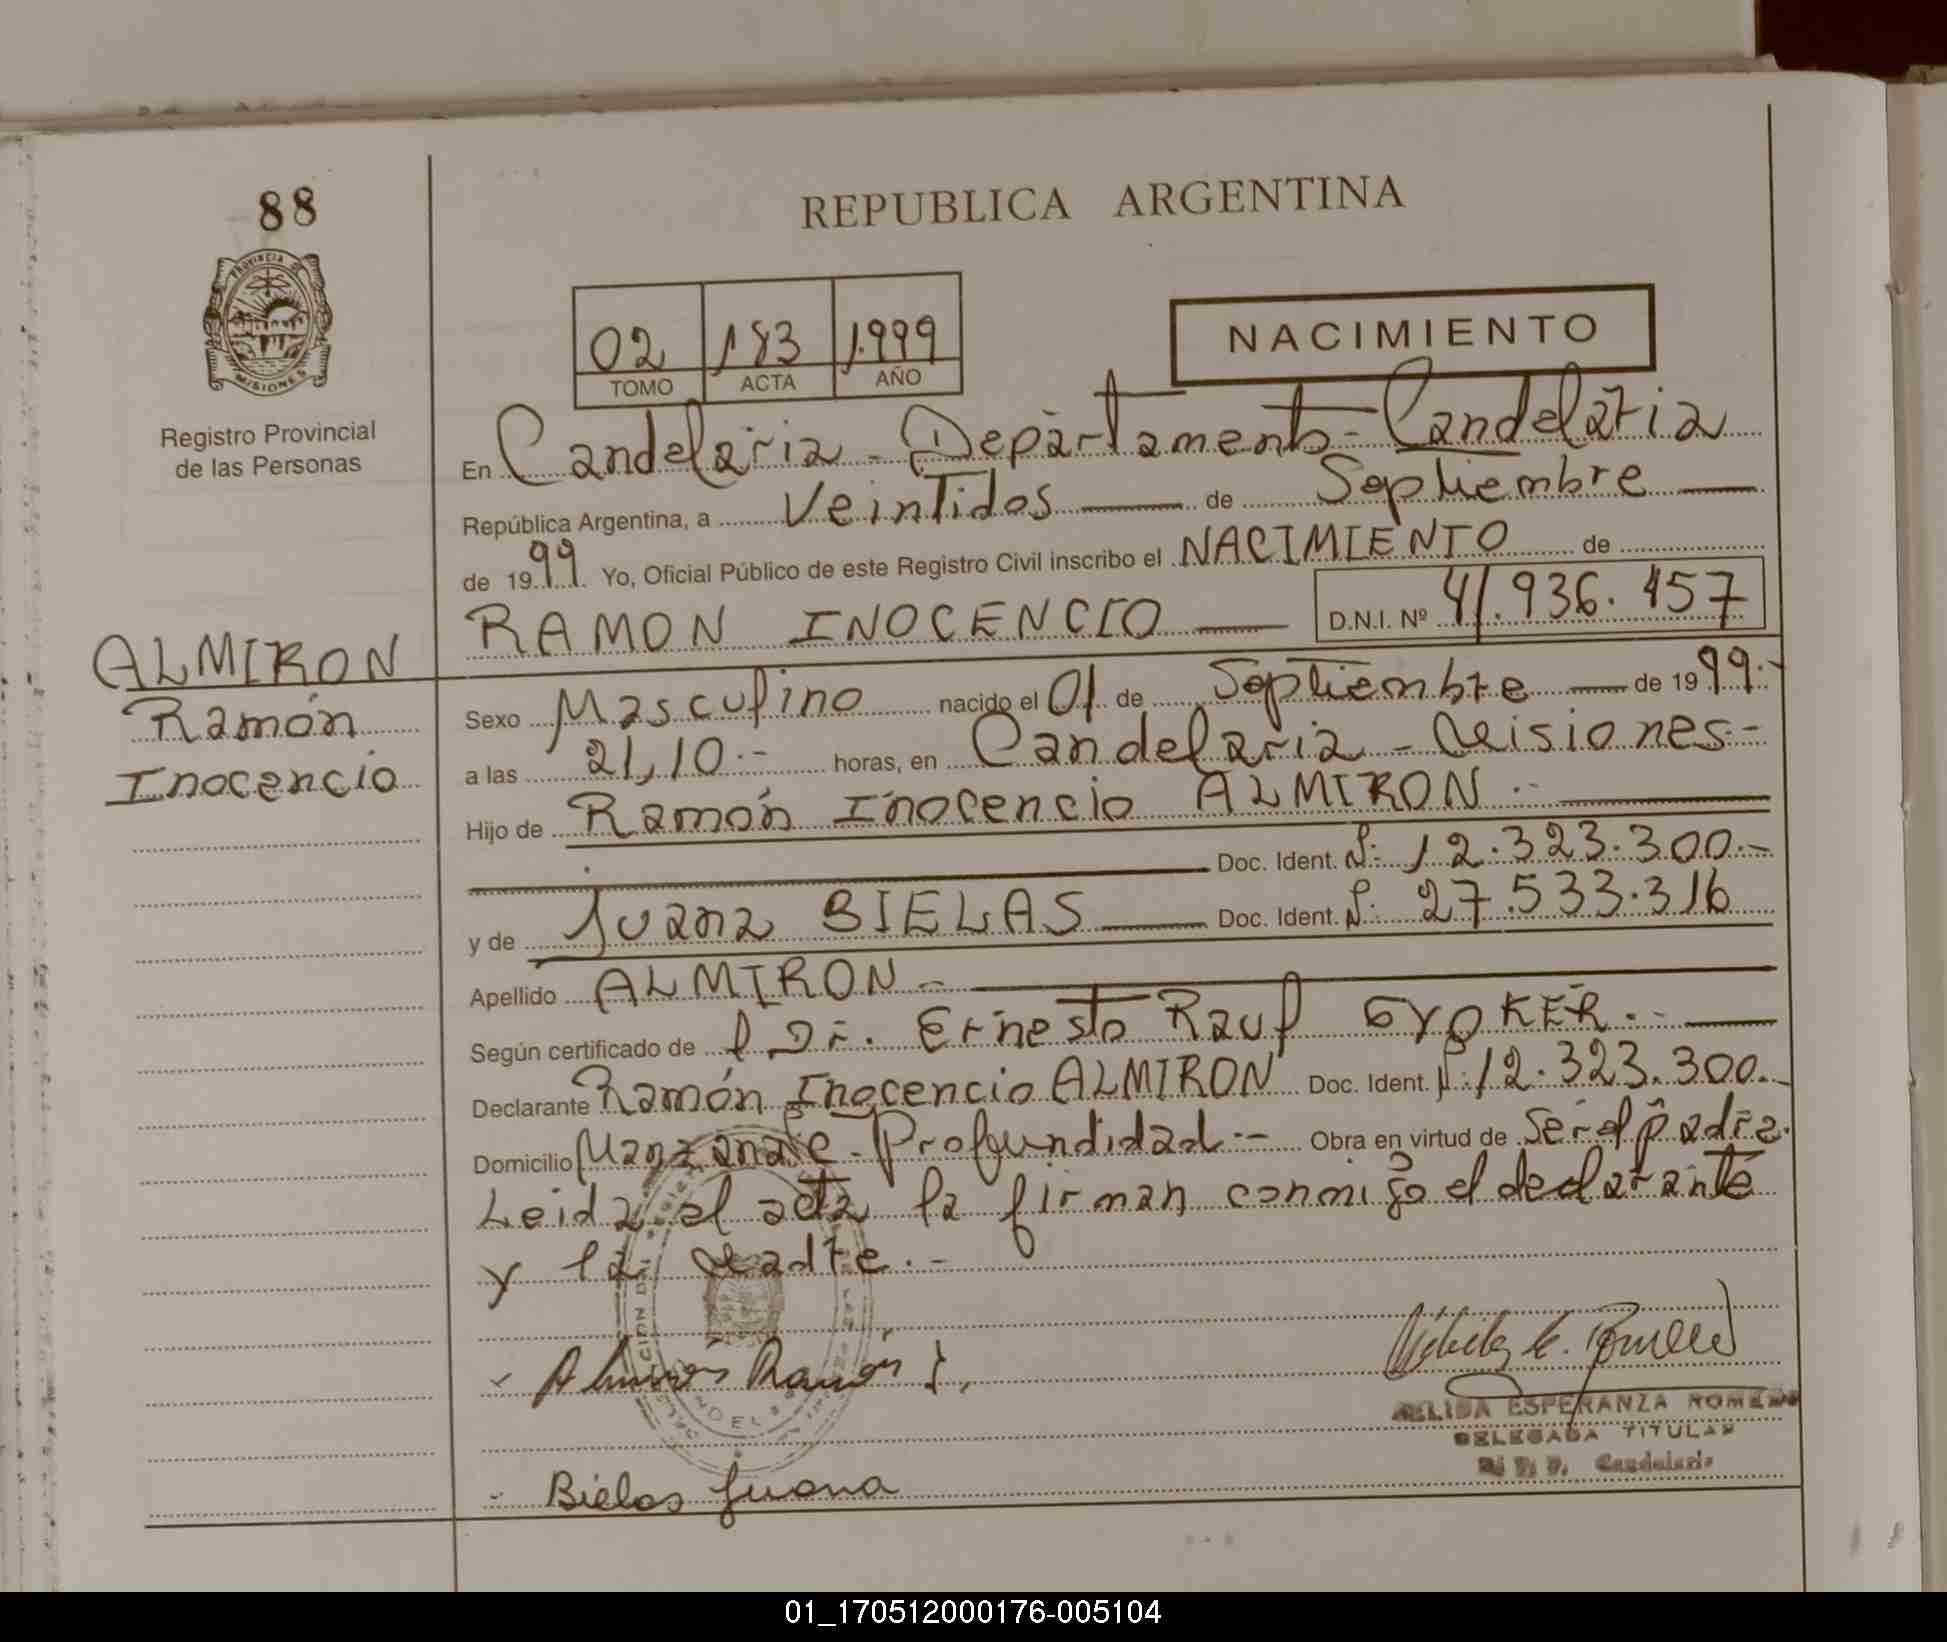 88
REPUBLICA ARGENTINA
PROVINCIA DE
MISIONES
Registro Provincial
de las Personas
02 183 1.999
TOMO ACTA AÑO
NACIMIENTO
En Candelaria - Departamento - Candelaria
República Argentina, a Veintidos de Septiembre
de 1999 Yo, Oficial Público de este Registro Civil inscribo el NACIMIENTO de
RAMON INOCENCIO D.N.I. Nº 41.936.457
ALMIRON
Ramón
Inocencio
Sexo Masculino nacido el 01 de Septiembre de 1999.-
a las 21,10.- horas, en Candelaria - Misiones.-
Hijo de Ramón Inocencio ALMIRON.-
Doc. Ident. 12.323.300.-
y de Juana BIELAS Doc. Ident. 27.533.316
Apellido ALMIRON -
Según certificado de l Dr. Ernesto Raul GYOKER.-
Declarante Ramón Inocencio ALMIRON Doc. Ident. 12.323.300.-
Domicilio Profundidad.- Obra en virtud de ser el padre.
Leida el acta la firman conmigo el declarante
y la Madre.-
Almiron Ramón I.
ESPERANZA ROMERO
DELEGADA TITULAR
Candelaria
Bielas Juana
01_170512000176-005104